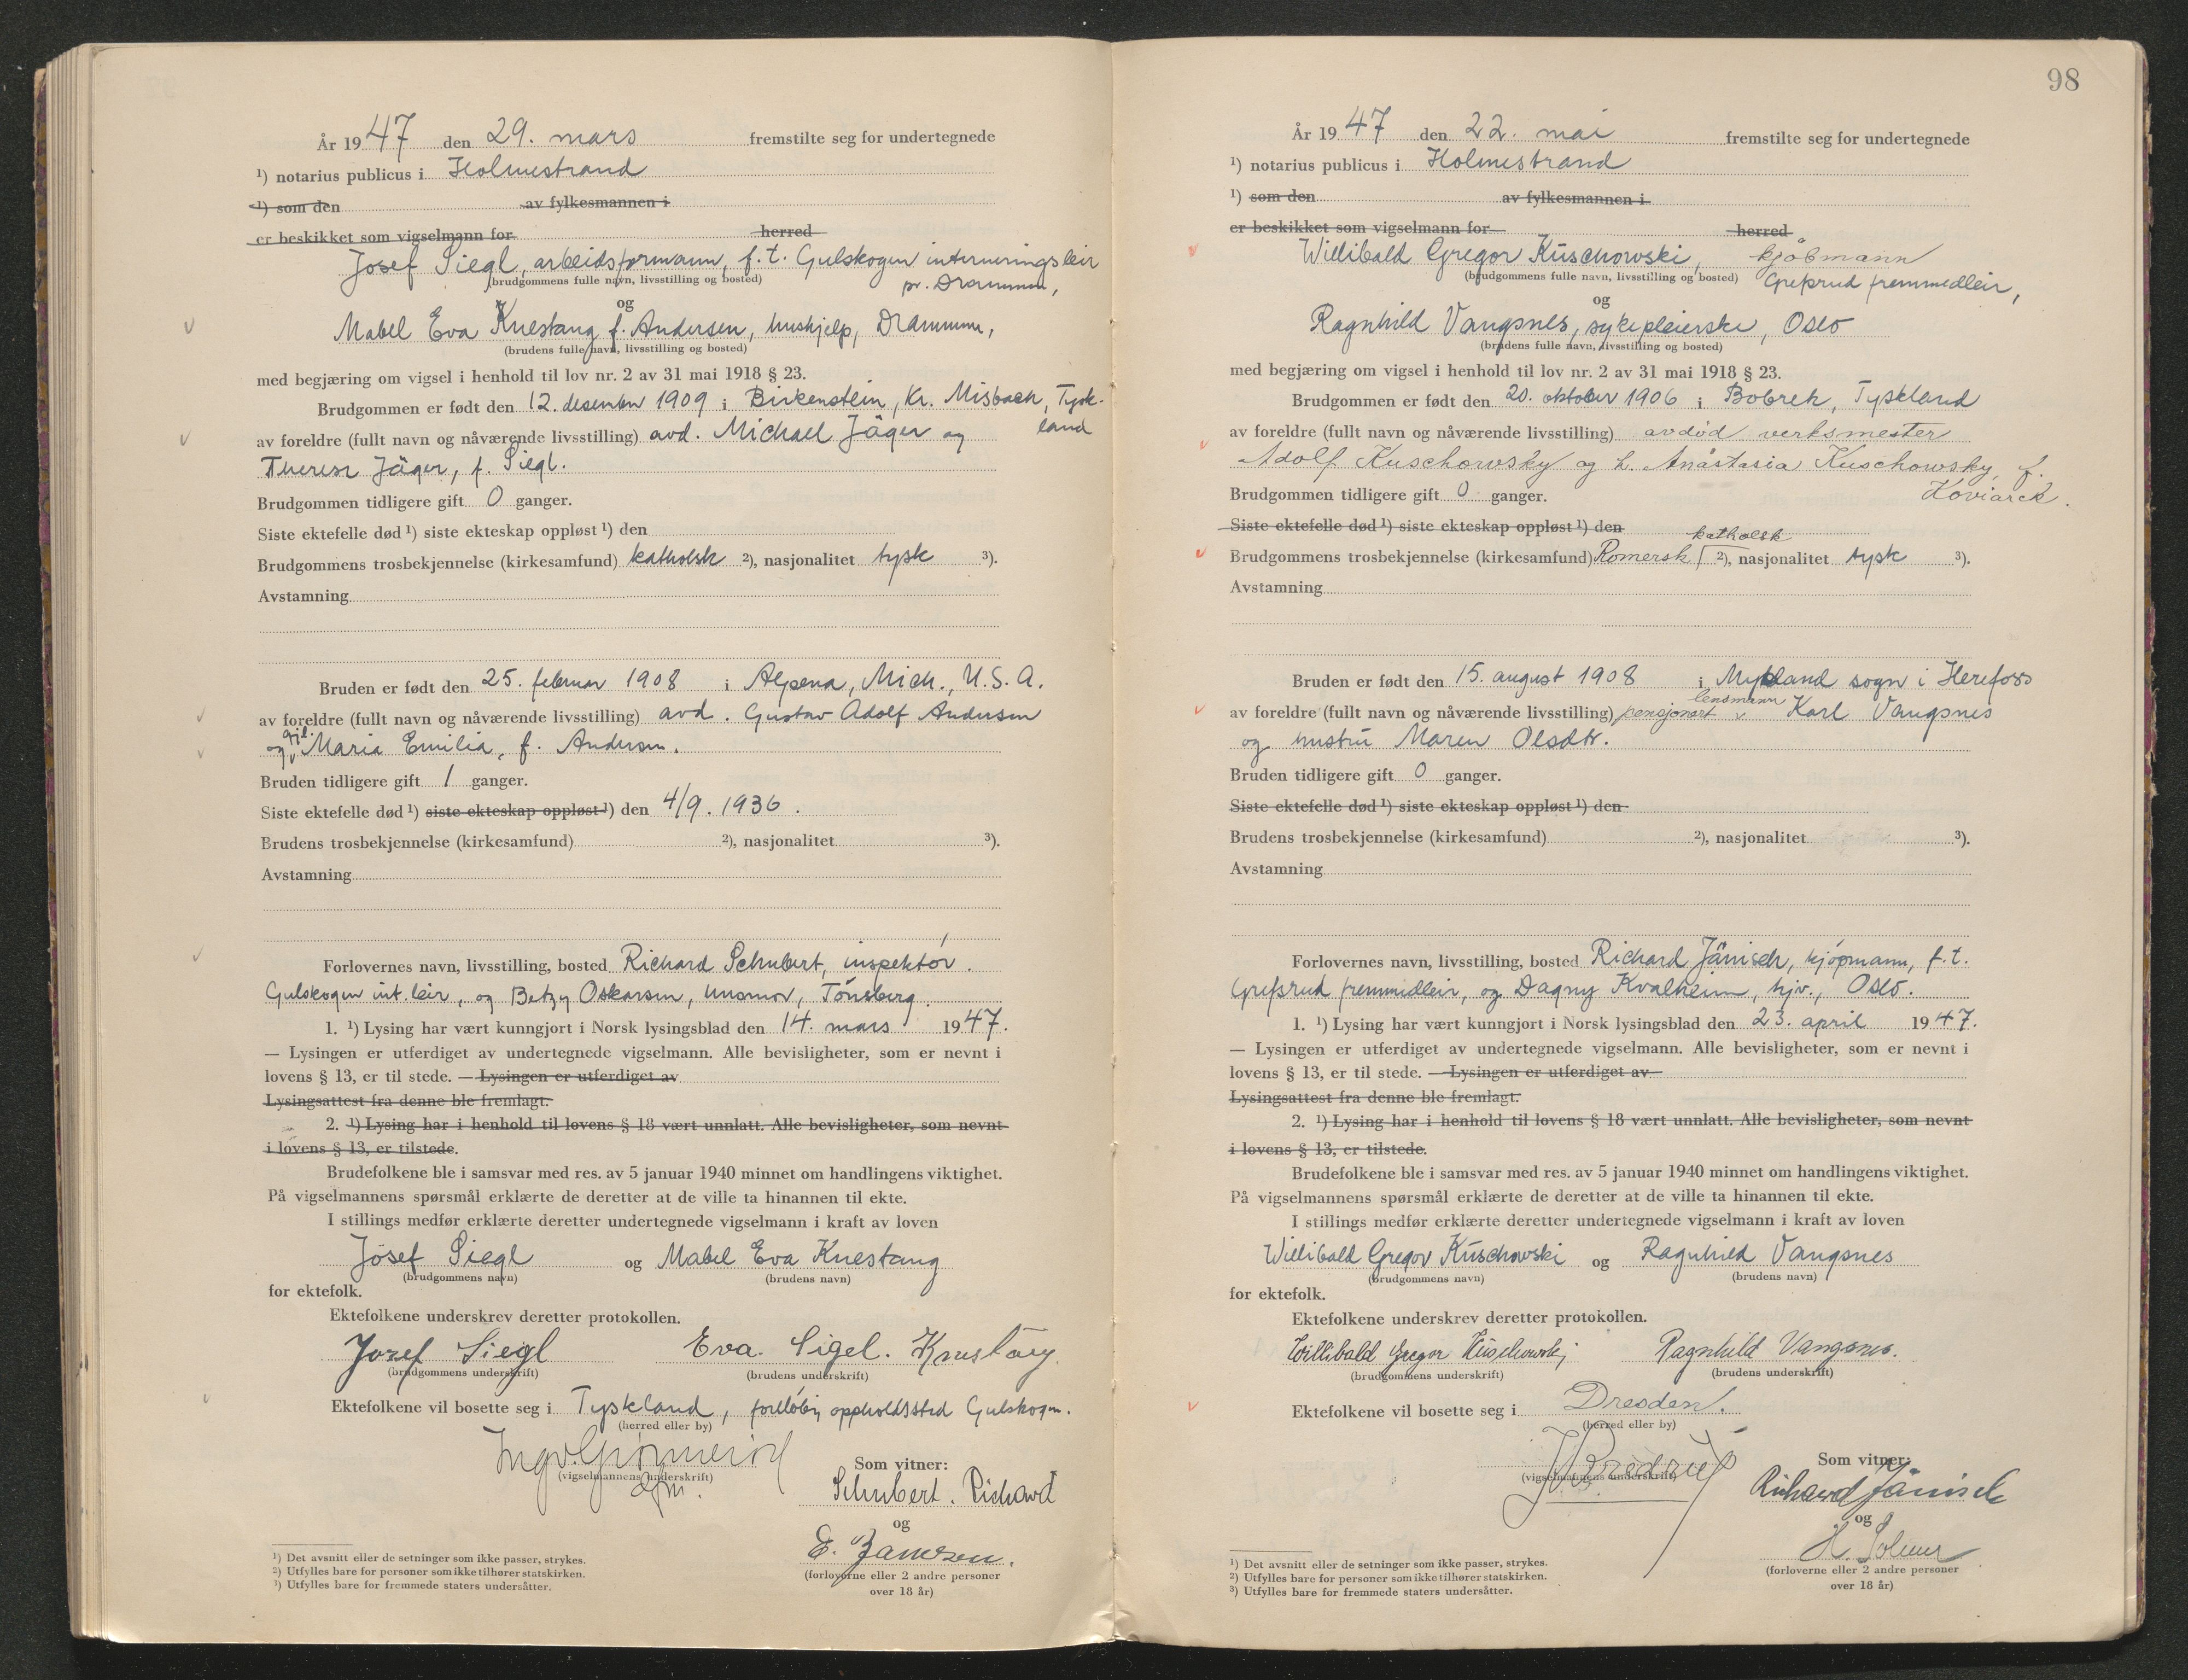 År 1947 den 29. mars fremstilte seg for undertegnede
¹) notarius publicus i Holmestrand
¹) som den av fylkesmannen i
er beskikket som vigselmann for herred
Josef Siegl, arbeidsformann, f.t. Gulskogen interneringsleir
(brudgommens fulle navn, livsstilling og bosted) pr. Drammen,
og
Mabel Eva Knestang f. Andersen, hushjelp, Drammen,
(brudens fulle navn, livsstilling og bosted)
med begjæring om vigsel i henhold til lov nr. 2 av 31 mai 1918 § 23.
Brudgommen er født den 12. desember 1909 i Birkenstein, Kr. Misbach, Tysk-
land
av foreldre (fullt navn og nåværende livsstilling) avd. Michael Jäger og
Therese Jäger, f. Siegl.
Brudgommen tidligere gift 0 ganger.
Siste ektefelle død ¹) siste ekteskap oppløst ¹) den
Brudgommens trosbekjennelse (kirkesamfund) katholsk ²), nasjonalitet tysk ³).
Avstamning
Bruden er født den 25. februar 1908 i Alpena, Mich., U.S.A.
av foreldre (fullt navn og nåværende livsstilling) avd. Gustav Adolf Andersen
og gjl. Maria Emilia, f. Andersen.
Bruden tidligere gift 1 ganger.
Siste ektefelle død ¹) siste ekteskap oppløst ¹) den 4/9. 1936.
Brudens trosbekjennelse (kirkesamfund) ²), nasjonalitet ³).
Avstamning
Forlovernes navn, livsstilling, bosted Richard Schubert, inspektör.
Gulskogen int.leir, og Betzy Oskarsen, husmor, Tönsberg.
1. ¹) Lysing har vært kunngjort i Norsk lysingsblad den 14. mars 1947.
— Lysingen er utferdiget av undertegnede vigselmann. Alle bevisligheter, som er nevnt i
lovens § 13, er til stede. — Lysingen er utferdiget av
Lysingsattest fra denne ble fremlagt.
2. ¹) Lysing har i henhold til lovens § 18 vært unnlatt. Alle bevisligheter, som nevnt
i lovens § 13, er tilstede.
Brudefolkene ble i samsvar med res. av 5 januar 1940 minnet om handlingens viktighet.
På vigselmannens spørsmål erklærte de deretter at de ville ta hinannen til ekte.
I stillings medfør erklærte deretter undertegnede vigselmann i kraft av loven
Josef Siegl og Mabel Eva Knestang
(brudgommens navn) (brudens navn)
for ektefolk.
Ektefolkene underskrev deretter protokollen.
Josef Siegl Eva. Sigel. Knestang
(brudgommens underskrift) (brudens underskrift)
Ektefolkene vil bosette seg i Tyskland, foreløbig oppholdssted Gulskogen.
(herred eller by)
Ingv. Grønnerød
(vigselmannens underskrift)
dfm.
Som vitner:
Schubert. Richard
og
E. Jansen.
(forloverne eller 2 andre personer
over 18 år)
¹) Det avsnitt eller de setninger som ikke passer, strykes.
²) Utfylles bare for personer som ikke tilhører statskirken.
³) Utfylles bare for fremmede staters undersåtter.
98
År 1947 den 22. mai fremstilte seg for undertegnede
¹) notarius publicus i Holmestrand
¹) som den av fylkesmannen i
er beskikket som vigselmann for herred
Willibald Gregor Kuschowski, kjöbmann
(brudgommens fulle navn, livsstilling og bosted) Grefsrud fremmedleir,
og
Ragnhild Vangsnes, sykepleierske, Oslo
(brudens fulle navn, livsstilling og bosted)
med begjæring om vigsel i henhold til lov nr. 2 av 31 mai 1918 § 23.
Brudgommen er født den 20. oktober 1906 i Bobrek, Tyskland
av foreldre (fullt navn og nåværende livsstilling) avdöd verksmester
Adolf Kuschowsky og h. Anastasia Kuschowsky, f.
Brudgommen tidligere gift 0 ganger. Koviarek.
Siste ektefelle død ¹) siste ekteskap oppløst ¹) den
katholsk
Brudgommens trosbekjennelse (kirkesamfund) Romersk ²), nasjonalitet tysk ³).
Avstamning
Bruden er født den 15. august 1908 i Mykland sogn i Herefoss
lensmann
av foreldre (fullt navn og nåværende livsstilling) pensjonert Karl Vangsnes
og hustru Maren Olsdtr.
Bruden tidligere gift 0 ganger.
Siste ektefelle død ¹) siste ekteskap oppløst ¹) den
Brudens trosbekjennelse (kirkesamfund) ²), nasjonalitet ³).
Avstamning
Forlovernes navn, livsstilling, bosted Richard Jänisch, kjöpmann, f.t.
Grefsrud fremmedleir, og Dagny Kvalheim, hjv., Oslo.
1. ¹) Lysing har vært kunngjort i Norsk lysingsblad den 23. april 1947.
— Lysingen er utferdiget av undertegnede vigselmann. Alle bevisligheter, som er nevnt i
lovens § 13, er til stede. — Lysingen er utferdiget av
Lysingsattest fra denne ble fremlagt.
2. ¹) Lysing har i henhold til lovens § 18 vært unnlatt. Alle bevisligheter, som nevnt
i lovens § 13, er tilstede.
Brudefolkene ble i samsvar med res. av 5 januar 1940 minnet om handlingens viktighet.
På vigselmannens spørsmål erklærte de deretter at de ville ta hinannen til ekte.
I stillings medfør erklærte deretter undertegnede vigselmann i kraft av loven
Willibald Gregor Kuschowski og Ragnhild Vangsnes
(brudgommens navn) (brudens navn)
for ektefolk.
Ektefolkene underskrev deretter protokollen.
Willibald Gregor Kuschowski Ragnhild Vangsnes.
(brudgommens underskrift) (brudens underskrift)
Ektefolkene vil bosette seg i Dresden.
(herred eller by)
(vigselmannens underskrift)
Som vitner:
Richard Jänisch
og
H. Solum
(forloverne eller 2 andre personer
over 18 år)
¹) Det avsnitt eller de setninger som ikke passer, strykes.
²) Utfylles bare for personer som ikke tilhører statskirken.
³) Utfylles bare for fremmede staters undersåtter.